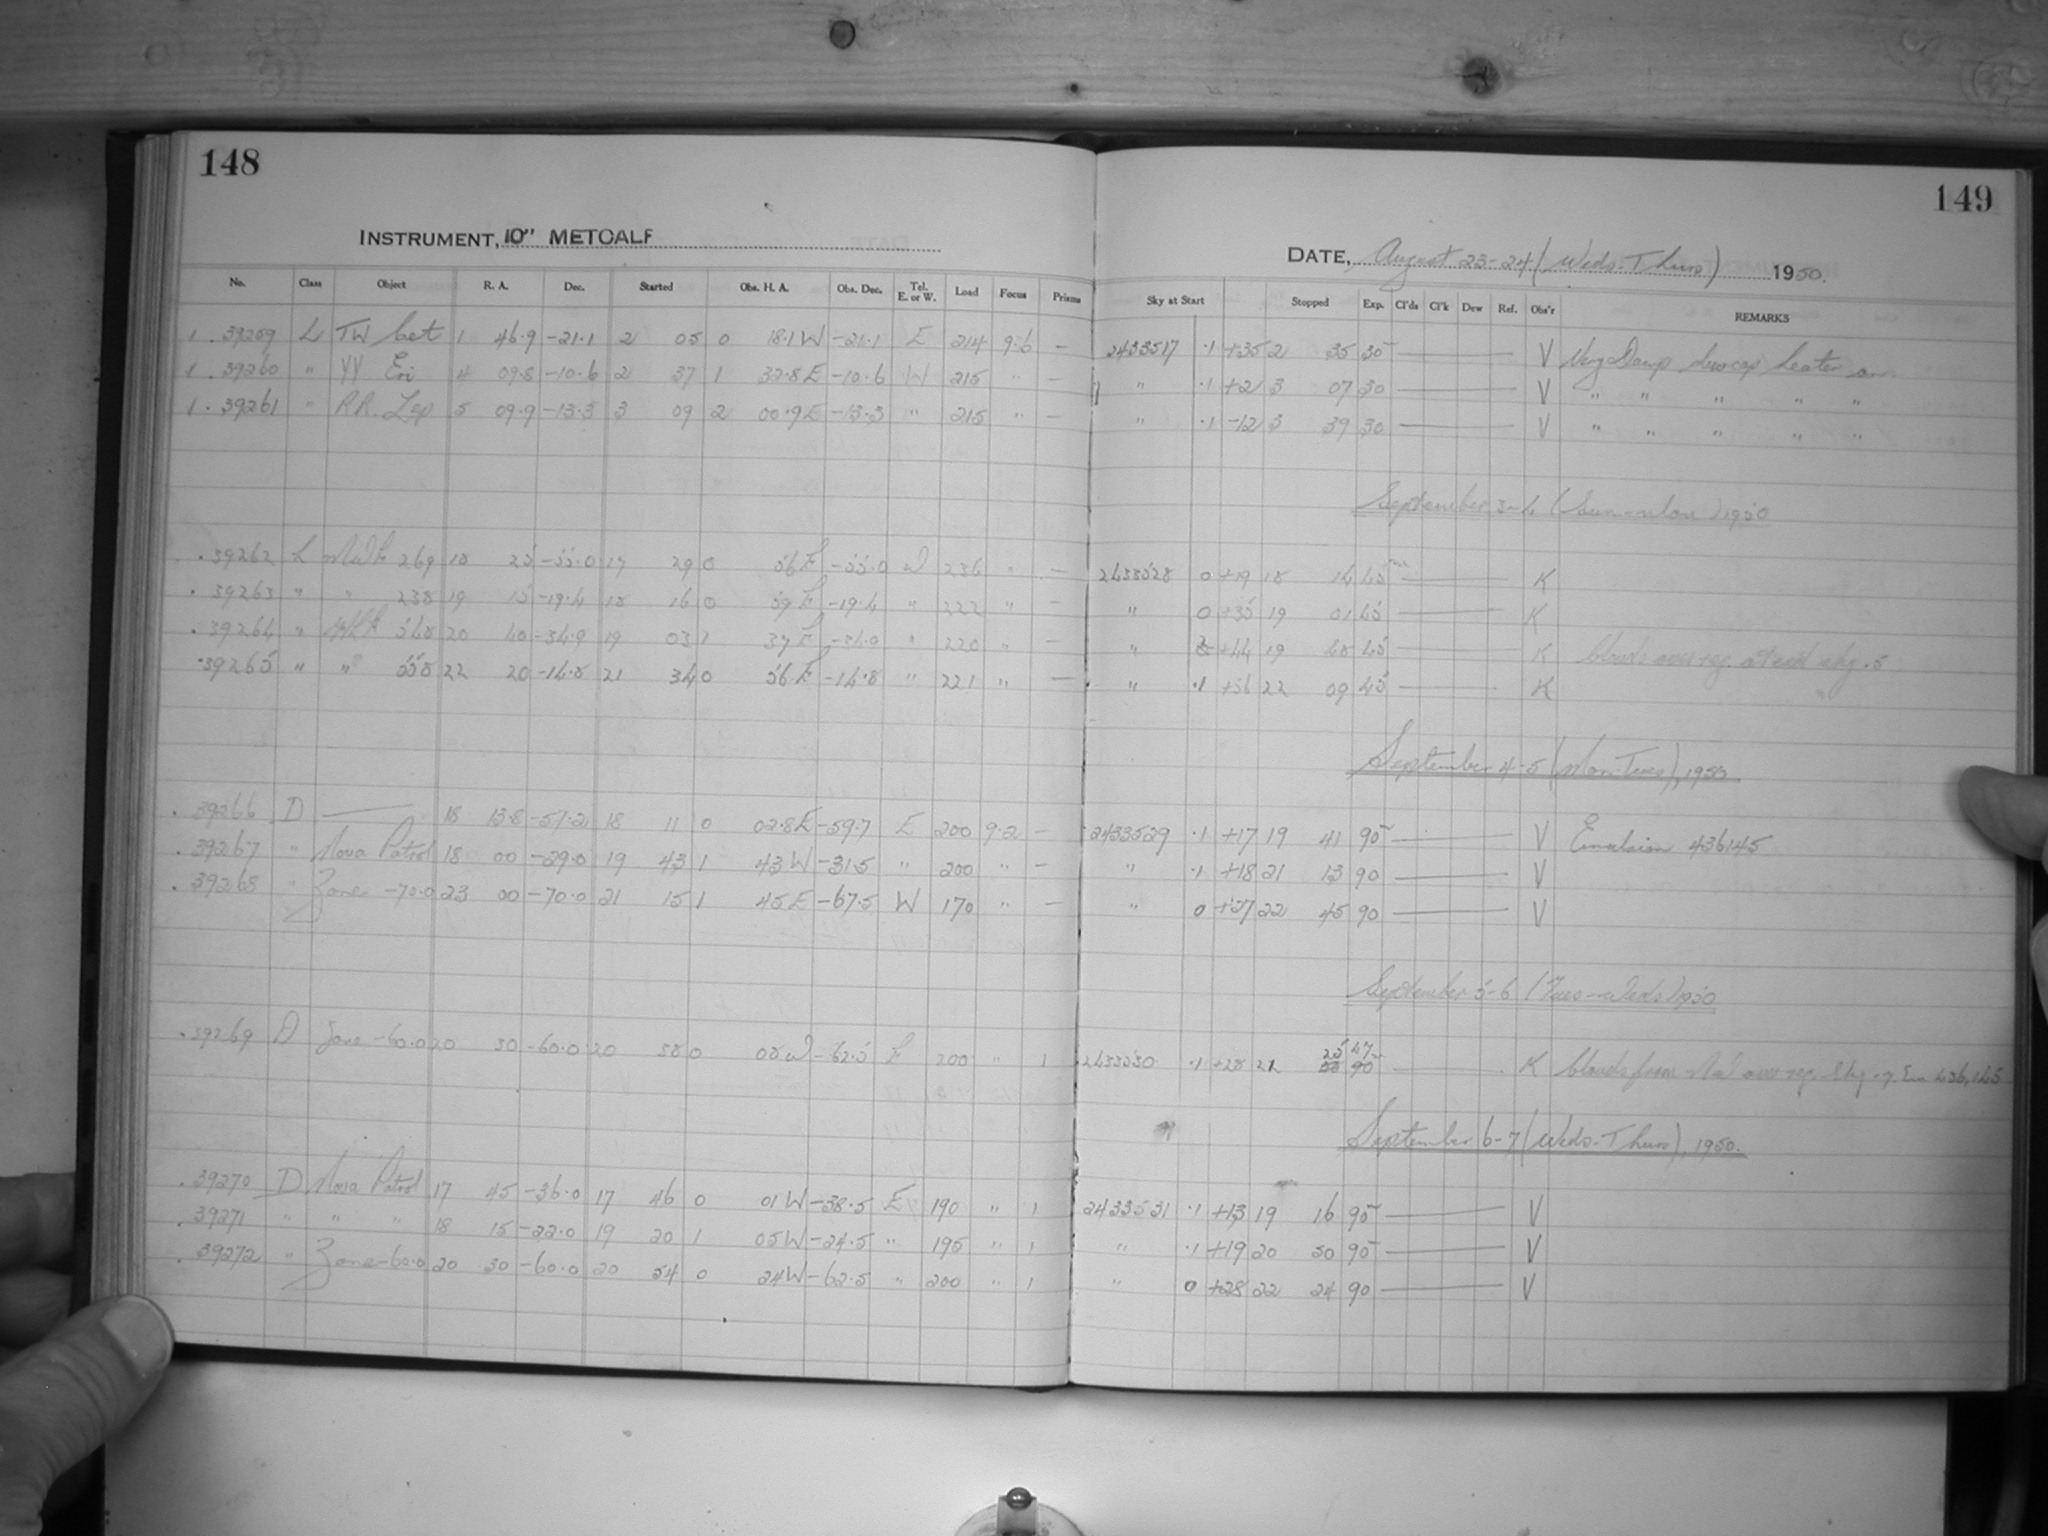 148
149
INSTRUMENT, 10" METCALF
DATE, August 23-24 (Weds-Thurs) 1950.
No. Class Object R. A. Dec. Started Obs. H. A. Obs. Dec. Tel. E. or W. Load Focus Prisms Sky at Start Stopped Exp. Cl'ds Cl'k Dew Ref. Obs'r REMARKS
1 . 39259 L TW Cet 1 46.9 -21.1 2 05 0 18.1W -21.1 E 214 9.6 — 2433517 .1 +35 2 35 30 — V Very Damp dewcap heater on
1 . 39260 " YY Eri 4 09.8 -10.6 2 37 1 32.8E -10.6 W 215 " — " .1 +2 3 07 30 — V " " " " "
1 . 39261 " RR Lep 5 09.9 -13.3 3 09 2 00.9E -13.3 " 215 " — " .1 -12 3 39 30 — V " " " " "
September 3-4 (Sun-Mon) 1950
. 39262 L 269 18 25 -55.0 17 29 0 56E -55.0 W 236 " — 2433528 0 +19 18 14 45 — K
. 39263 " " 238 19 15 -19.4 18 16 0 59E -19.4 " 222 " — " 0 +35 19 01 45 — K
. 39264 " 548 20 40 -34.9 19 03 1 37E " 220 — " +44 19 48 45 — K Clouds over reg. at end
. 39265 " " 558 22 20 -14.8 21 34 0 56E -14.8 " 221 " — " .1 +56 22 09 45 — K
September 4-5 (Mon-Tues), 1950
. 39266 D — 18 13.8 -57.2 18 11 0 02.8E -59.7 E 200 9.2 — 2433529 .1 +17 19 41 90 — V Emulsion 436145
. 39267 " Nova Patrol 18 00 -29.0 19 43 1 43W -31.5 " 200 " — " .1 +18 21 13 90 — V
. 39268 " Zone -70.0 23 00 -70.0 21 15 1 45E -67.5 W 170 " — " 0 +27 22 45 90 — V
September 5-6 (Tues-Weds) 1950
. 39269 D Zone -60.0 20 30 -60.0 20 38 0 08W -62.5 E 200 " 1 2433530 .1 +28 22 25 47 90 — K Clouds from over reg. Em 436,145
September 6-7 (Weds-Thurs), 1950.
. 39270 D Nova Patrol 17 45 -36.0 17 46 0 01W -38.5 E 190 " 1 2433531 .1 +13 19 16 90 — V
. 39271 " " " 18 15 -22.0 19 20 1 05W -24.5 " 195 " 1 " .1 +19 20 50 90 — V
. 39272 " Zone -60.0 20 30 -60.0 20 54 0 24W -62.5 " 200 " 1 " 0 +28 22 24 90 — V